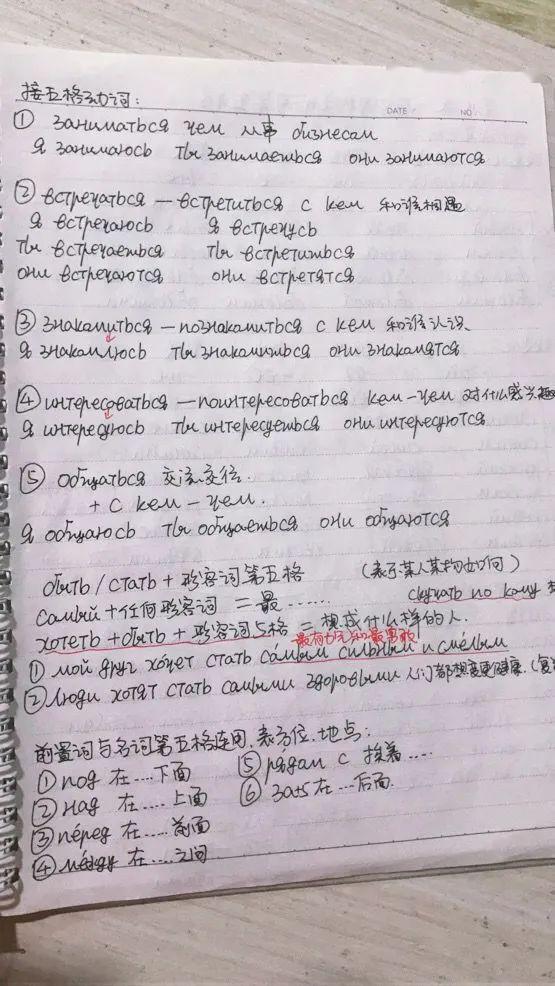 接五格动词:
DATE NO
① заниматься чем 从事 бизнесом
я занимаюсь ты занимаешься они занимаются
② встречаться — встретиться с кем 和谁相遇
я встречаюсь я встречусь
ты встречаешься ты встретишься
они встречаются они встретятся
③ знакомиться — познакомиться с кем 和谁认识
я знакомлюсь ты знакомишься они знакомятся
④ интересоваться — поинтересоваться кем-чем 对什么感兴趣
я интересуюсь ты интересуешься они интересуются
⑤ общаться 交流交往.
+ с кем-чем.
я общаюсь ты общаешься они общаются
быть / стать +形容词第五格 (表示某人某物如何)
самый +任何形容词 = 最…… скучать по кому
хотеть + быть + 形容词5格 = 想成什么样的人.
最有力气和最勇敢
① мой друг хо́чет стать са́мым сильным и сме́лым
② люди хотят стать самыми здоровыми 人们都想变更健康.
前置词与名词第五格连用.表方位.地点:
① под 在….下面 ⑤ рядом с 挨着…..
② над 在…..上面 ⑥ за+5 在…后面.
③ пе́ред 在…..前面
④ ме́жду 在…..之间